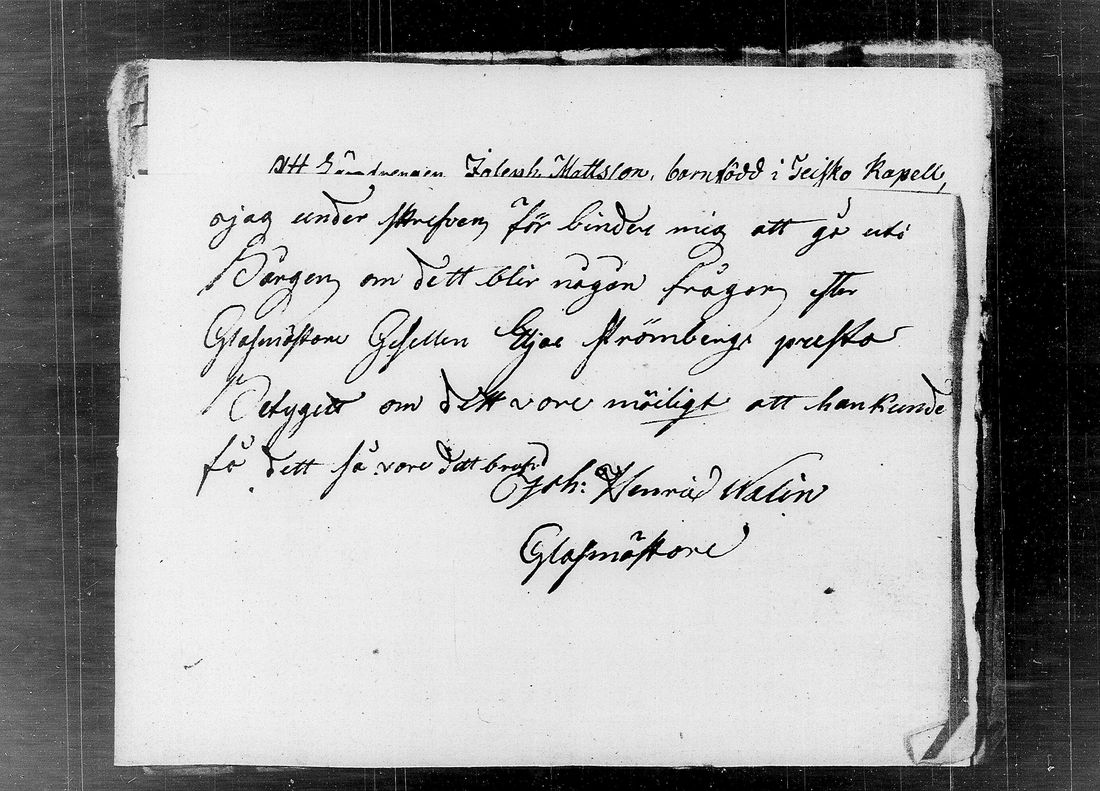 Att Gårdrengen Joseph Mattsson, barnfödd i Teisko Kapell,
ojag under skrefven för binder mig att gå uti
Bårgen om dett blir någån frågan efter
Glasmästare Gesellen Strömbergs presta
Betygett om dett vore möiligt att han kunde
få dett så vore dett bra
Joh: Henric Walin
Glasmästare